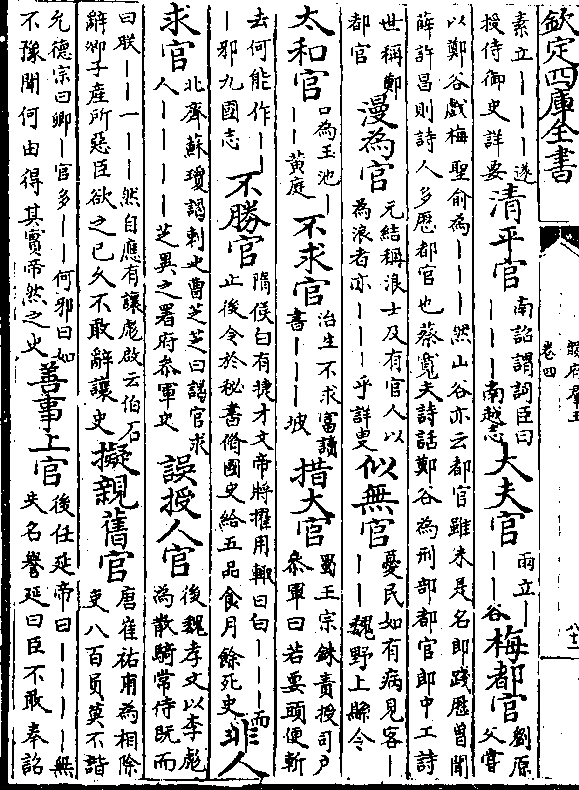 欽定四庫全書
韻府群玉
卷四
素立｜｜｜遂
授侍御史詳要
清平官
南詔謂詞臣曰
｜｜｜南越志
大夫官
兩立｜
｜｜谷
梅都官
劉原
父嘗
以鄭谷戲梅聖俞為｜｜｜然山谷亦云都官雖未是名郎踐歷曽聞
薛許昌則詩人多歷都官也蔡寬夫詩話鄭谷為刑部都官郎中工詩
世稱鄭
都官
漫為官
元結稱浪士及有官人以
為浪者亦｜｜｜乎詳叟
似無官
憂民如有病見客｜
｜｜魏野上縣令
太和官
口為玉池｜
｜｜黃庭
不求官
治生不求富讀
書｜｜｜坡
措大官
蜀王宗銖責授司戶
叅軍曰若要頭便斬
去何能作｜｜
｜邪九國志
不勝官
隋侯白有捷才文帝將擢用輙曰白｜｜｜而
止後令於秘書脩國史給五品食月餘死史
非人
求官
北齊蘇瓊謁刺史曹芝芝曰謁官求
人｜｜｜｜芝異之署府叅軍史
誤授人官
後魏孝文以李彪
為散騎常侍既而
曰朕｜｜一｜｜｜然自應有讓彪啟云伯石
辭卿子産所惡臣欲之已久不敢辭讓史
擬親舊官
唐崔祐甫為相除
吏八百員莫不諧
允德宗曰卿｜官多｜｜何邪曰如
不豫聞何由得其實帝然之史
善事上官
後任延帝曰｜｜｜｜無
失名譽延曰臣不敢奉詔